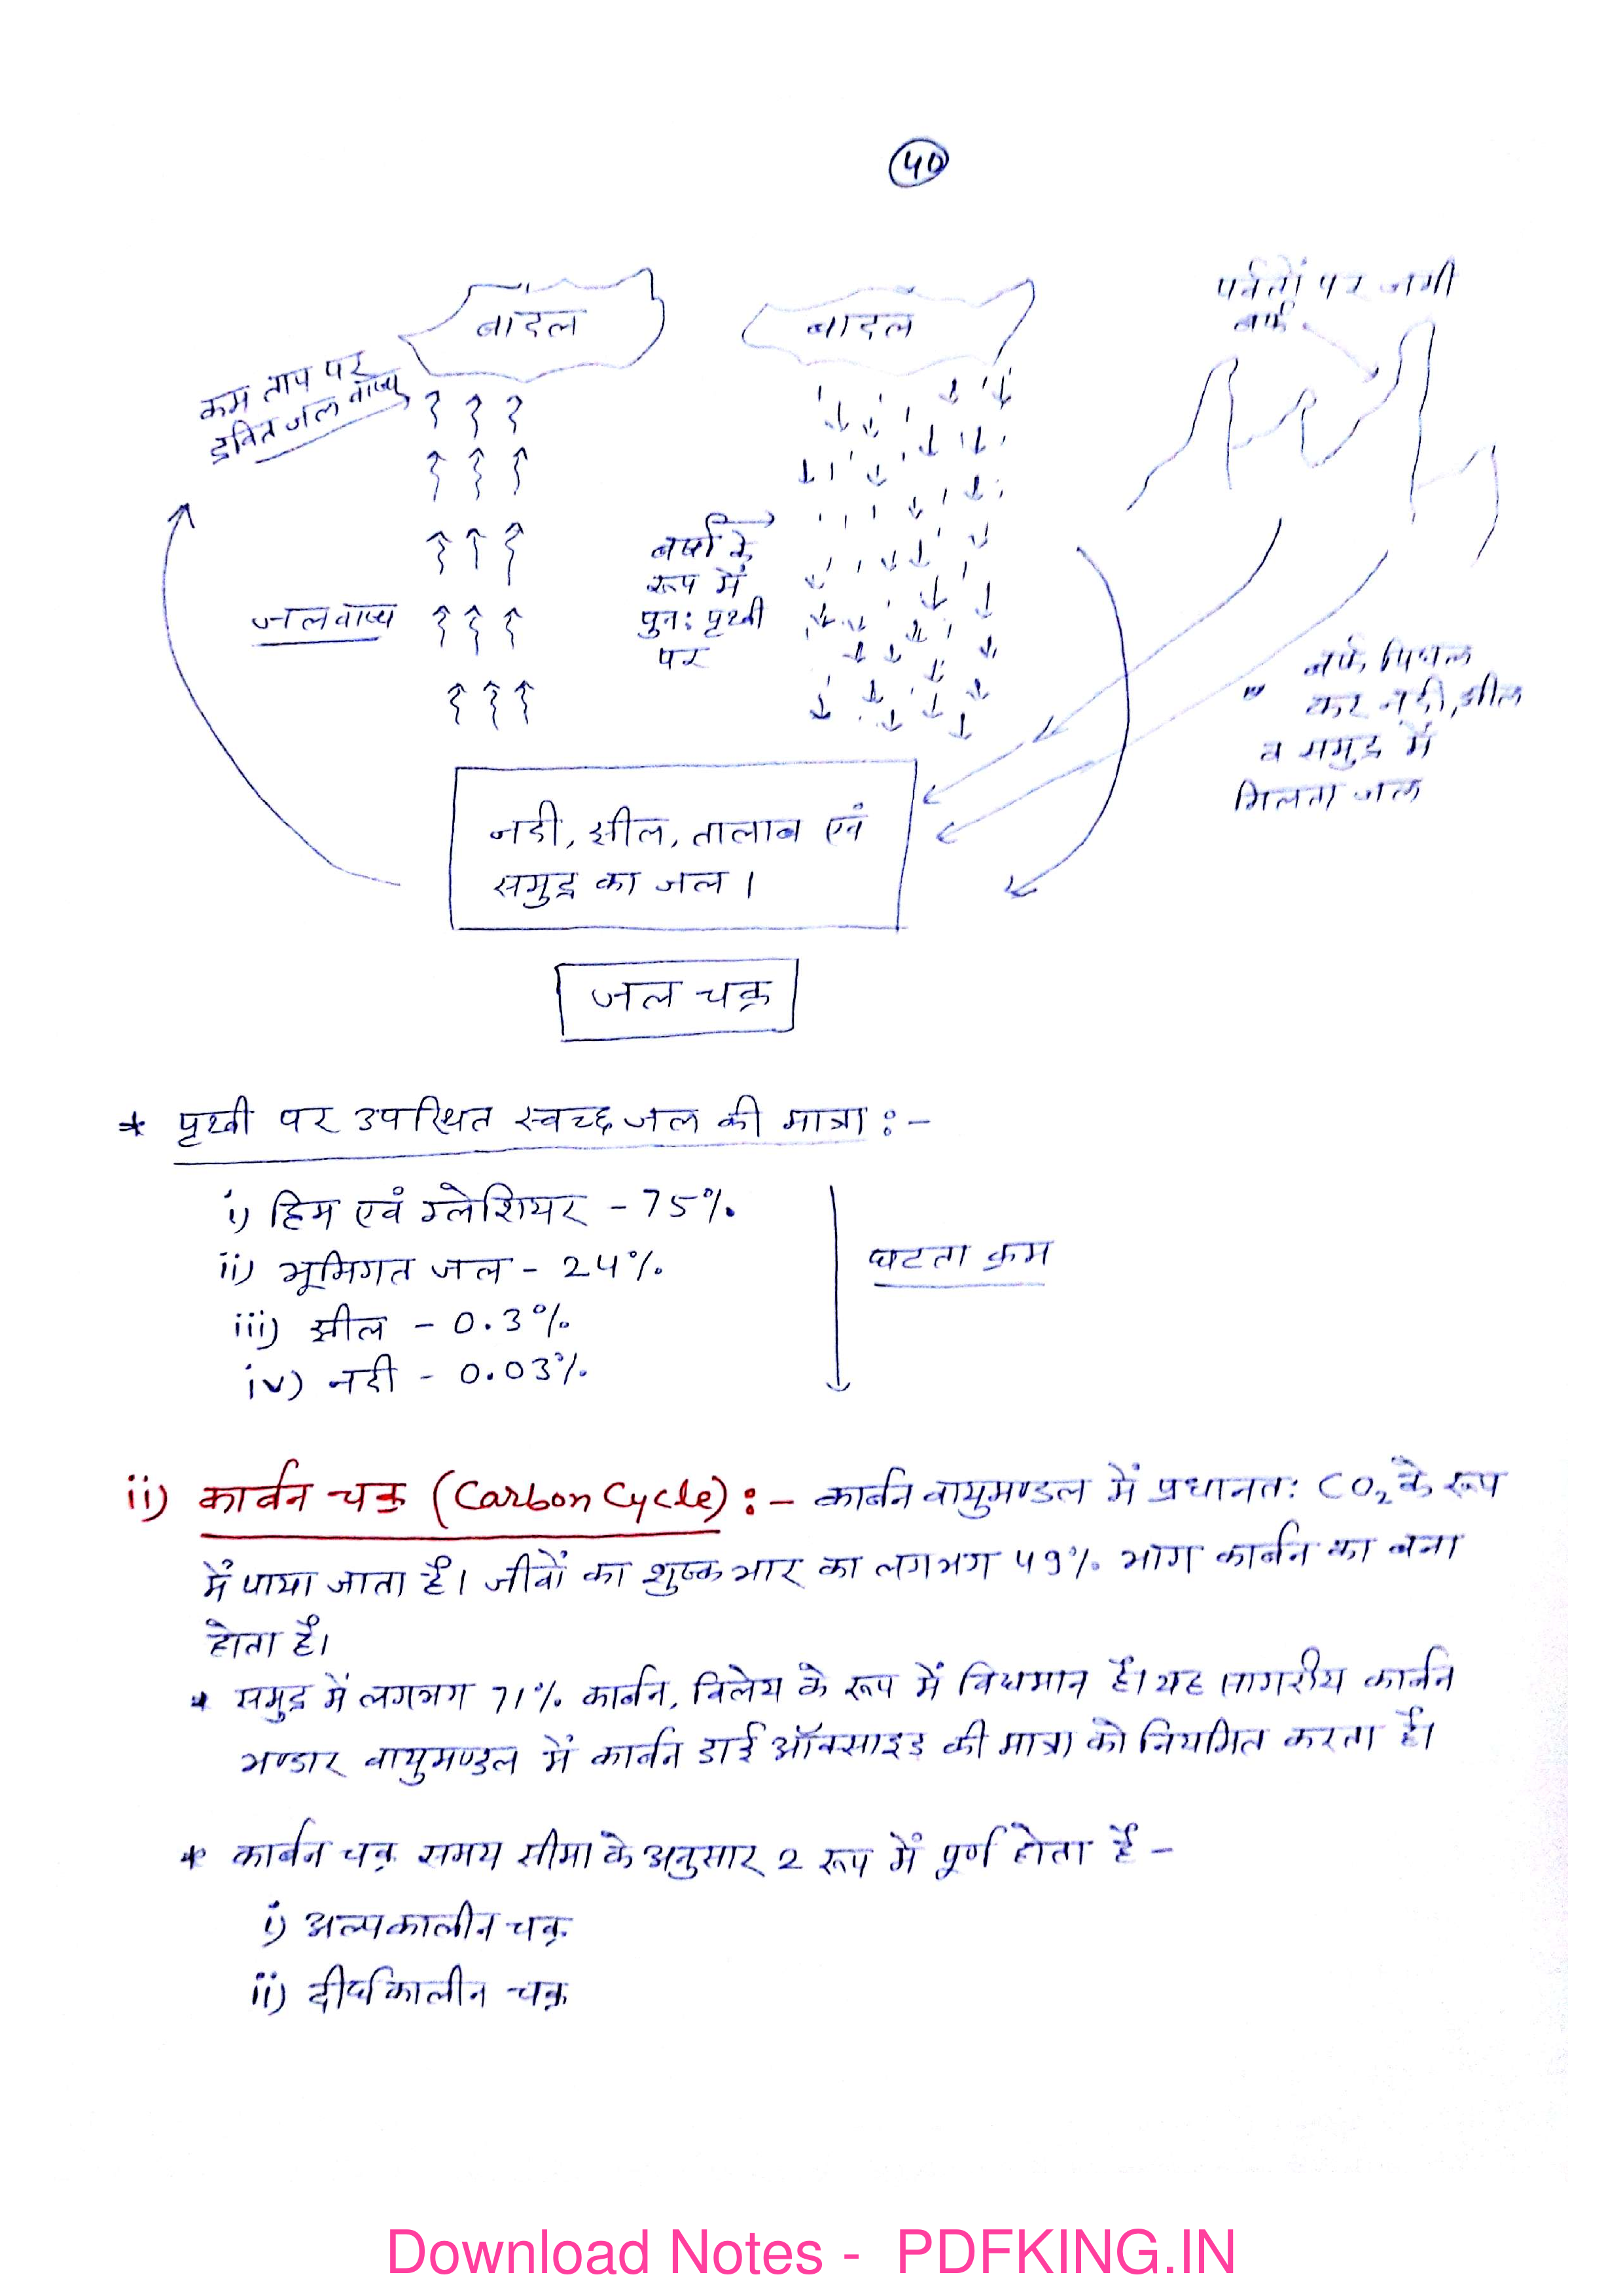 40
बादल
बादल
पर्वतों पर जमी
बर्फ
कम ताप पर
द्रवित जल वाष्प
जलवाष्प
वर्षा के
रूप में
पुन: पृथ्वी
पर
बर्फ पिघल
कर नदी, झील
व समुद्र में
मिलता जल
नदी, झील, तालाब एवं
समुद्र का जल।
जल चक्र
* पृथ्वी पर उपस्थित स्वच्छ जल की मात्रा :-
i) हिम एवं ग्लेशियर - 75%
ii) भूमिगत जल - 24%
iii) झील - 0.3%
iv) नदी - 0.03%
घटता क्रम
ii) कार्बन चक्र (Carbon Cycle) :- कार्बन वायुमण्डल में प्रधानत: CO₂ के रूप
में पाया जाता है। जीवों का शुष्क भार का लगभग 49% भाग कार्बन का बना
होता है।
* समुद्र में लगभग 71% कार्बन, विलेय के रूप में विद्यमान है। यह सागरीय कार्बन
भण्डार वायुमण्डल में कार्बन डाई ऑक्साइड की मात्रा को नियमित करता है।
* कार्बन चक्र समय सीमा के अनुसार 2 रूप में पूर्ण होता है -
i) अल्पकालीन चक्र
ii) दीर्घकालीन चक्र
Download Notes - PDFKING.IN